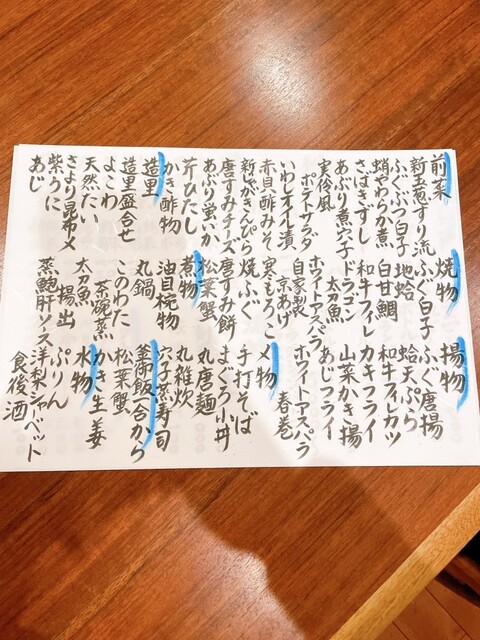 前菜
新玉葱すり流し
ふぐぶつ白子
蛸やわらか煮
さばきずし
あぶり煮穴子
実伶風
ポテトサラダ
いわしオイル漬
赤貝酢みそ
新じゃがきんぴら
唐すみチーズ
あぶり蛍いか
芹ひたし
かき酢物
造里
造里盛合せ
よこわ
天然たい
さより昆布〆
紫うに
あじ
焼物
ふぐ白子
地蛤
白甘鯛
和牛フィレ
ドラゴン
太刀魚
ホワイトアスパラ
自家製
京あげ
寒もろこ
焼ふぐ
唐すみ餅
松葉蟹
煮物
油目椀物
丸鍋
このわた
茶碗蒸
太刀魚
揚出
蒸鮑肝ソース
揚物
ふぐ唐揚
蛤天ぷら
和牛フィレカツ
カキフライ
山菜かき揚
あじフライ
ホワイトアスパラ
春巻
〆物
手打そば
まぐろ小丼
丸唐麺
丸雑炊
穴子蒸寿司
釜御飯一合から
松葉蟹
かき生姜
水物
ぷりん
洋梨シャーベット
食後酒